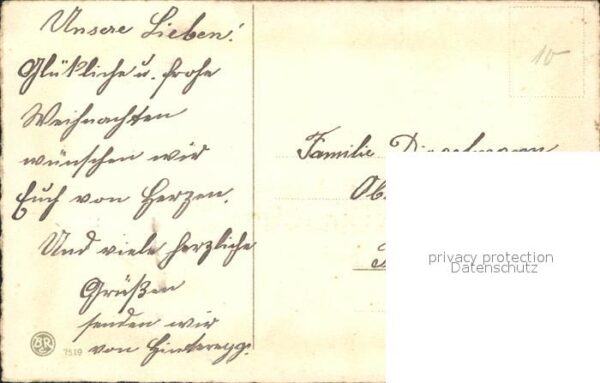 Unsere Lieben!
Glükliche u. frohe
Weihnachten
wünschen wir
Euch von Herzen.
Und viele herzliche
Grüßen
senden wir
von Hinteregg.
BR
7519
10
Familie
Ob
privacy protection
Datenschutz